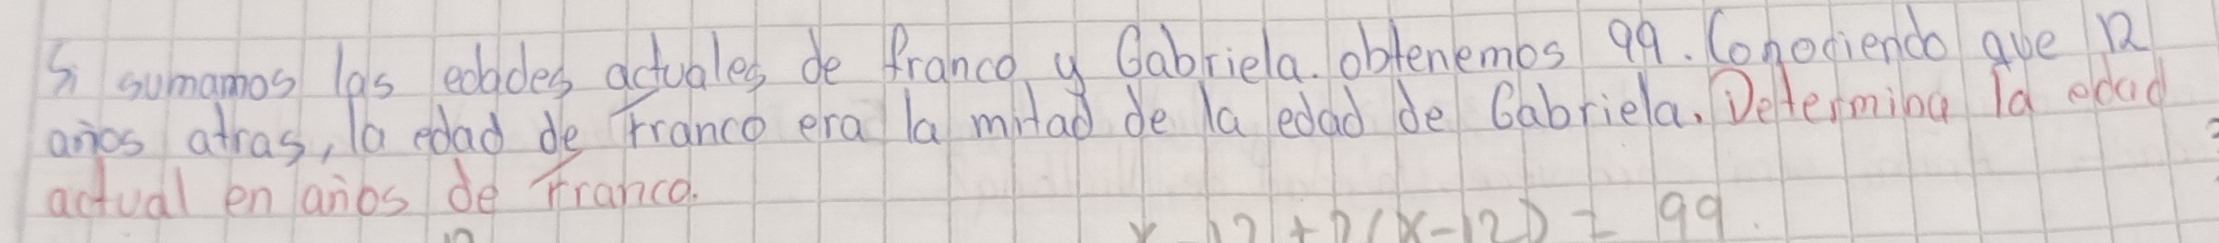 Si sumamos las edades actuales de franco y Gabriela. obtenemos 99. Conociendo que 12
años atras, la edad de Franco era la mitad de la edad de Gabriela. Determina la edad
actual en años de Franco.
x-12+2(x-12) = 99.